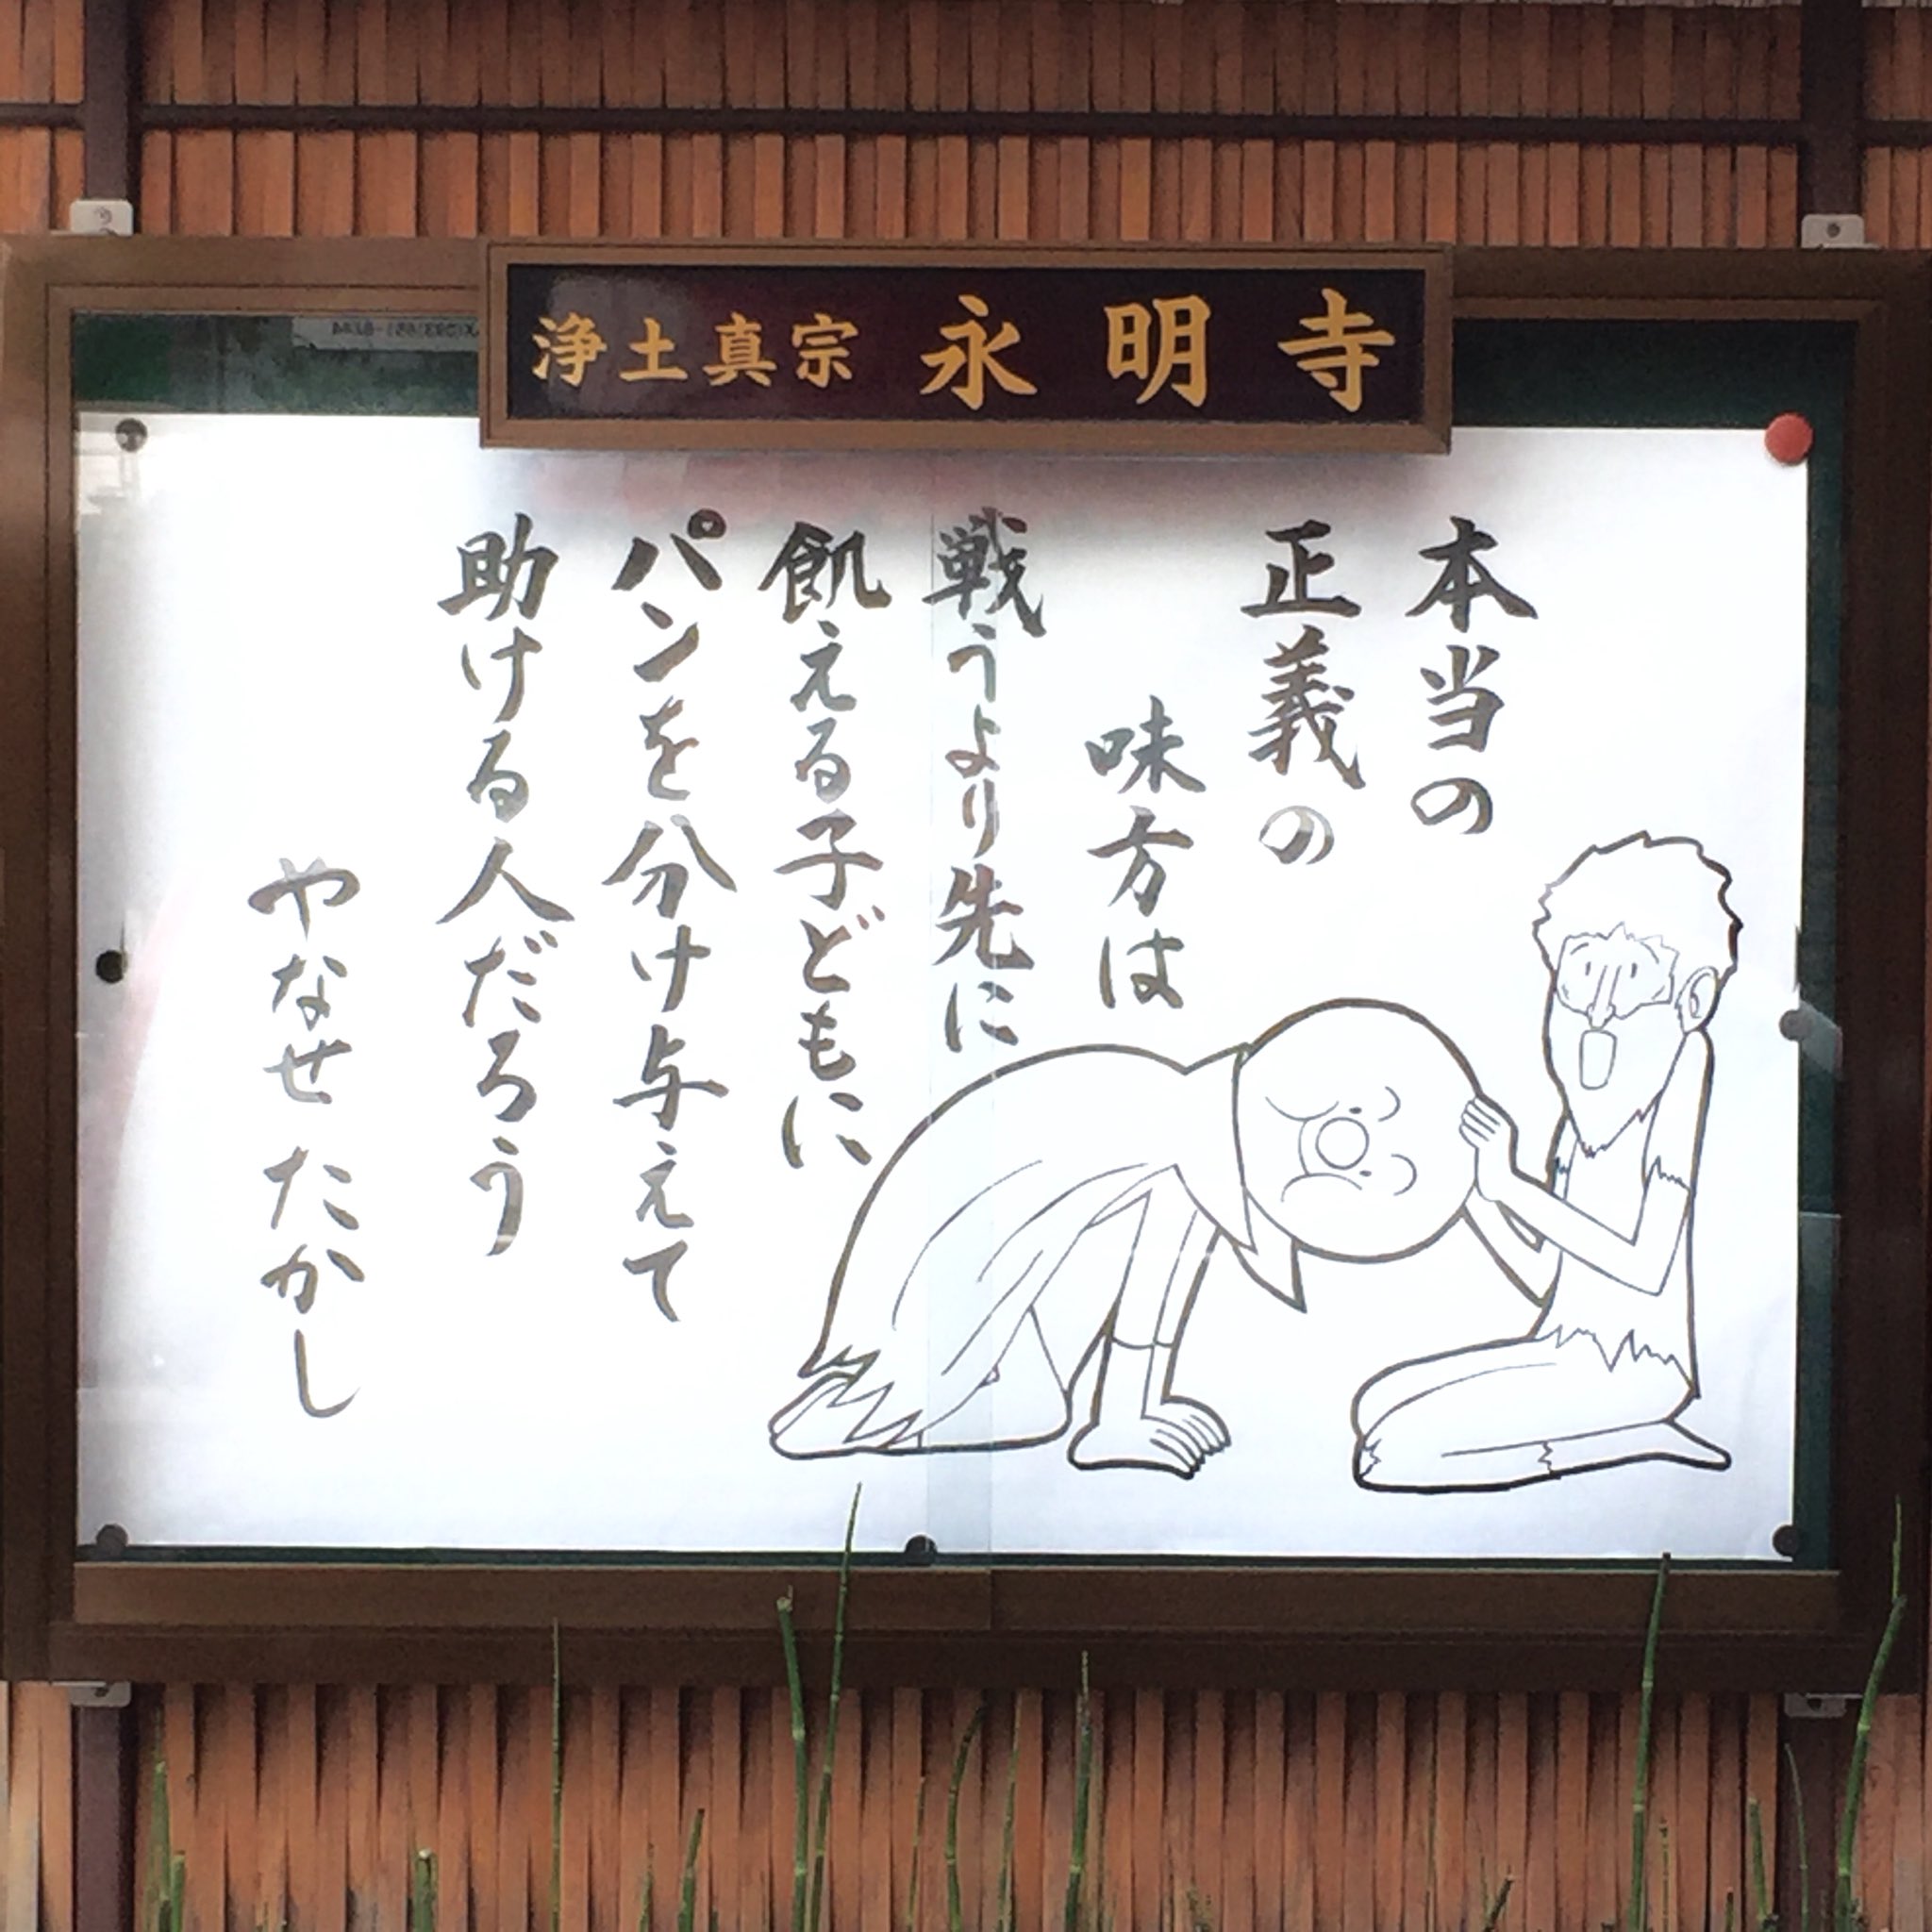 浄土真宗 永明寺
本当の
正義の
味方は
戦うより先に
飢える子どもに
パンを分け与えて
助ける人だろう
やなせ たかし